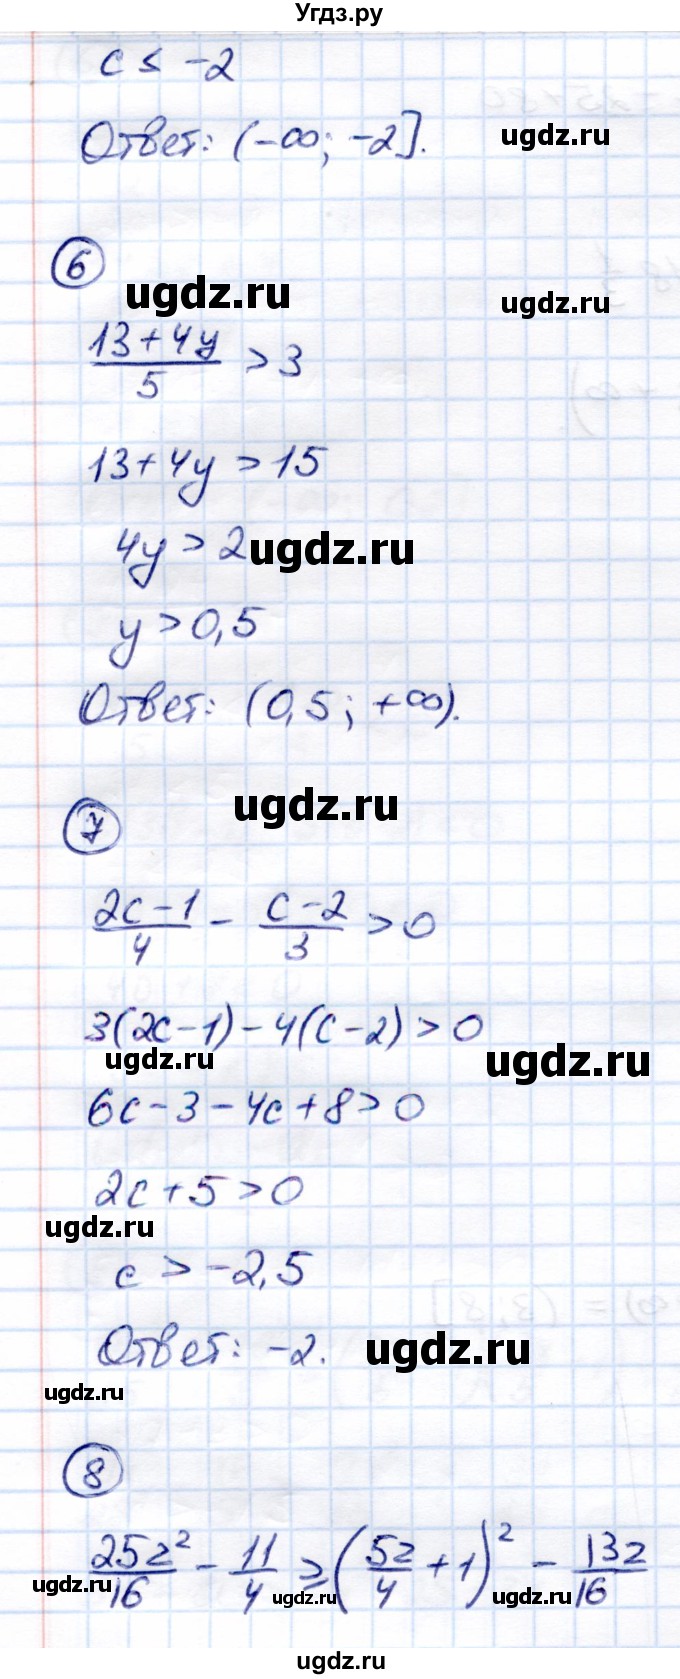 Угдз.ру
c ≤ -2
Ответ: (-∞; -2].
ugdz.ru
6
ugdz.ru
ugdz.ru
(13+4y)/5 > 3
13+4y > 15
4y > 2
ugdz.ru
y > 0,5
Ответ: (0,5; +∞).
7
ugdz.ru
(2c-1)/4 - (c-2)/3 > 0
3(2c-1)-4(c-2) > 0
ugdz.ru
ugdz.ru
6c-3-4c+8 > 0
2c+5 > 0
ugdz.ru
c > -2,5
Ответ: -2.
ugdz.ru
ugdz.ru
8
25z²/16 - 11/4 ≥ (5z/4 + 1)² - 13z/16
ugdz.ru
ugdz.ru
ugdz.ru
ugdz.ru